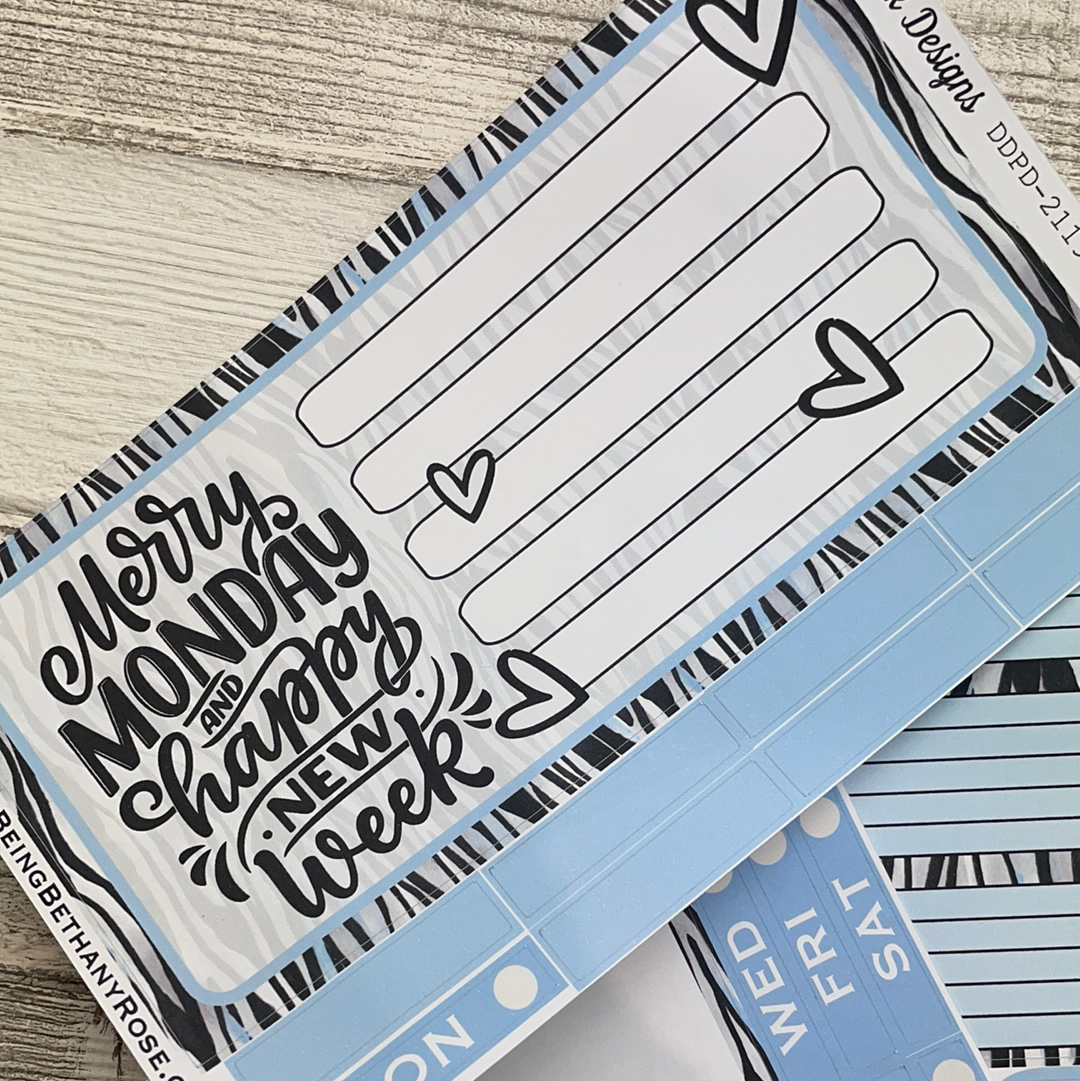 Designs
DDPD-2119
Merry
MONDAY
AND
happy
NEW
week
BEINGBETHANYROSE.
WED
FRI
SAT